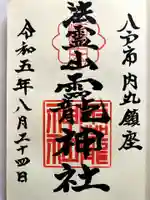 八戸市 内丸鎮座
法霊山龗神社
令和五年八月二十四日